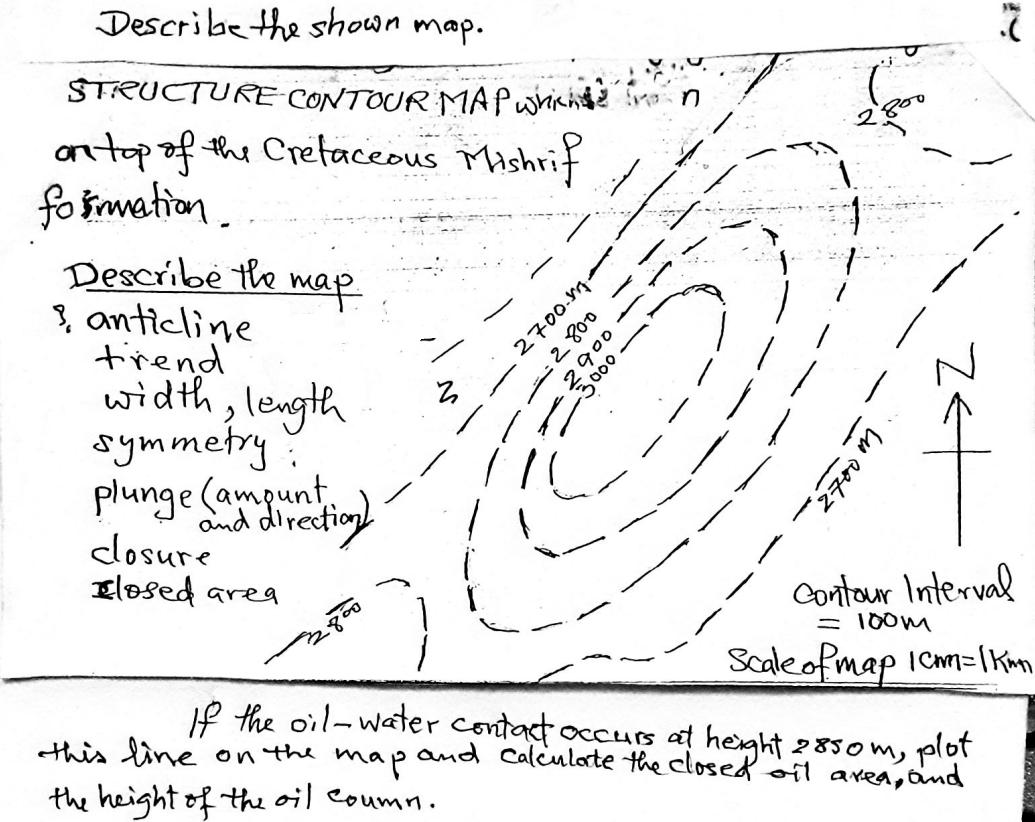 Describe the shown map.
STRUCTURE CONTOUR MAP which is n
on top of the Cretaceous Mishrif
formation.
Describe the map
anticline
trend
width, length
symmetry
plunge (amount
and direction)
closure
closed area
2800
2700 m
2800
2900
3000
2700 m
2800
N
Contour Interval
= 100m
Scale of map 1cm=1Km
If the oil-water contact occurs at height 2850m, plot
this line on the map and calculate the closed oil area, and
the height of the oil coumn.